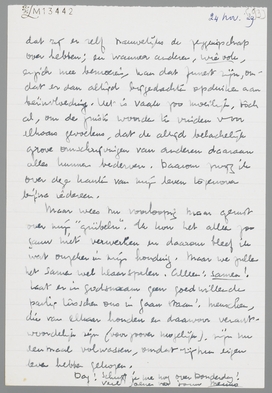 M13442
24 nov.
dat zij er zelf nauwelijks de zeggenschap
over hebben; en wanneer anderen,
zich mee bemoeien, kan dat funest zijn, om-
dat er dan altijd bijgedachten opduiken
Het is vaak zoo moeilijk, toch
al, om de juiste woorden te vinden voor
elkaar gevoelens, dat de altijd belachelijk
grove omschrijvingen van anderen daaraan
alles kunnen bederven. Daarom zwijg ik
over deze kanten van mijn leven tegenover
bijna iedereen.
Maar wees nu voorloopig maar gerust
over mijn "grübeln". Ik kon het alles zoo
gauw niet verwerken en daarom bleef ik
wat in mijn houding. Maar we zullen
het samen wel klaarspelen. Alleen: samen!
Laat er in godsnaam geen goedwillende
partij tusschen ons in gaan staan! menschen,
die van elkaar houden en daarvoor verant-
woordelijk zijn (voor zoover mogelijk), zijn nu
eenmaal volwassen, omdat zij hun eigen
leven hebben gekozen.
Dag! je me nog over Donderdag?
veel